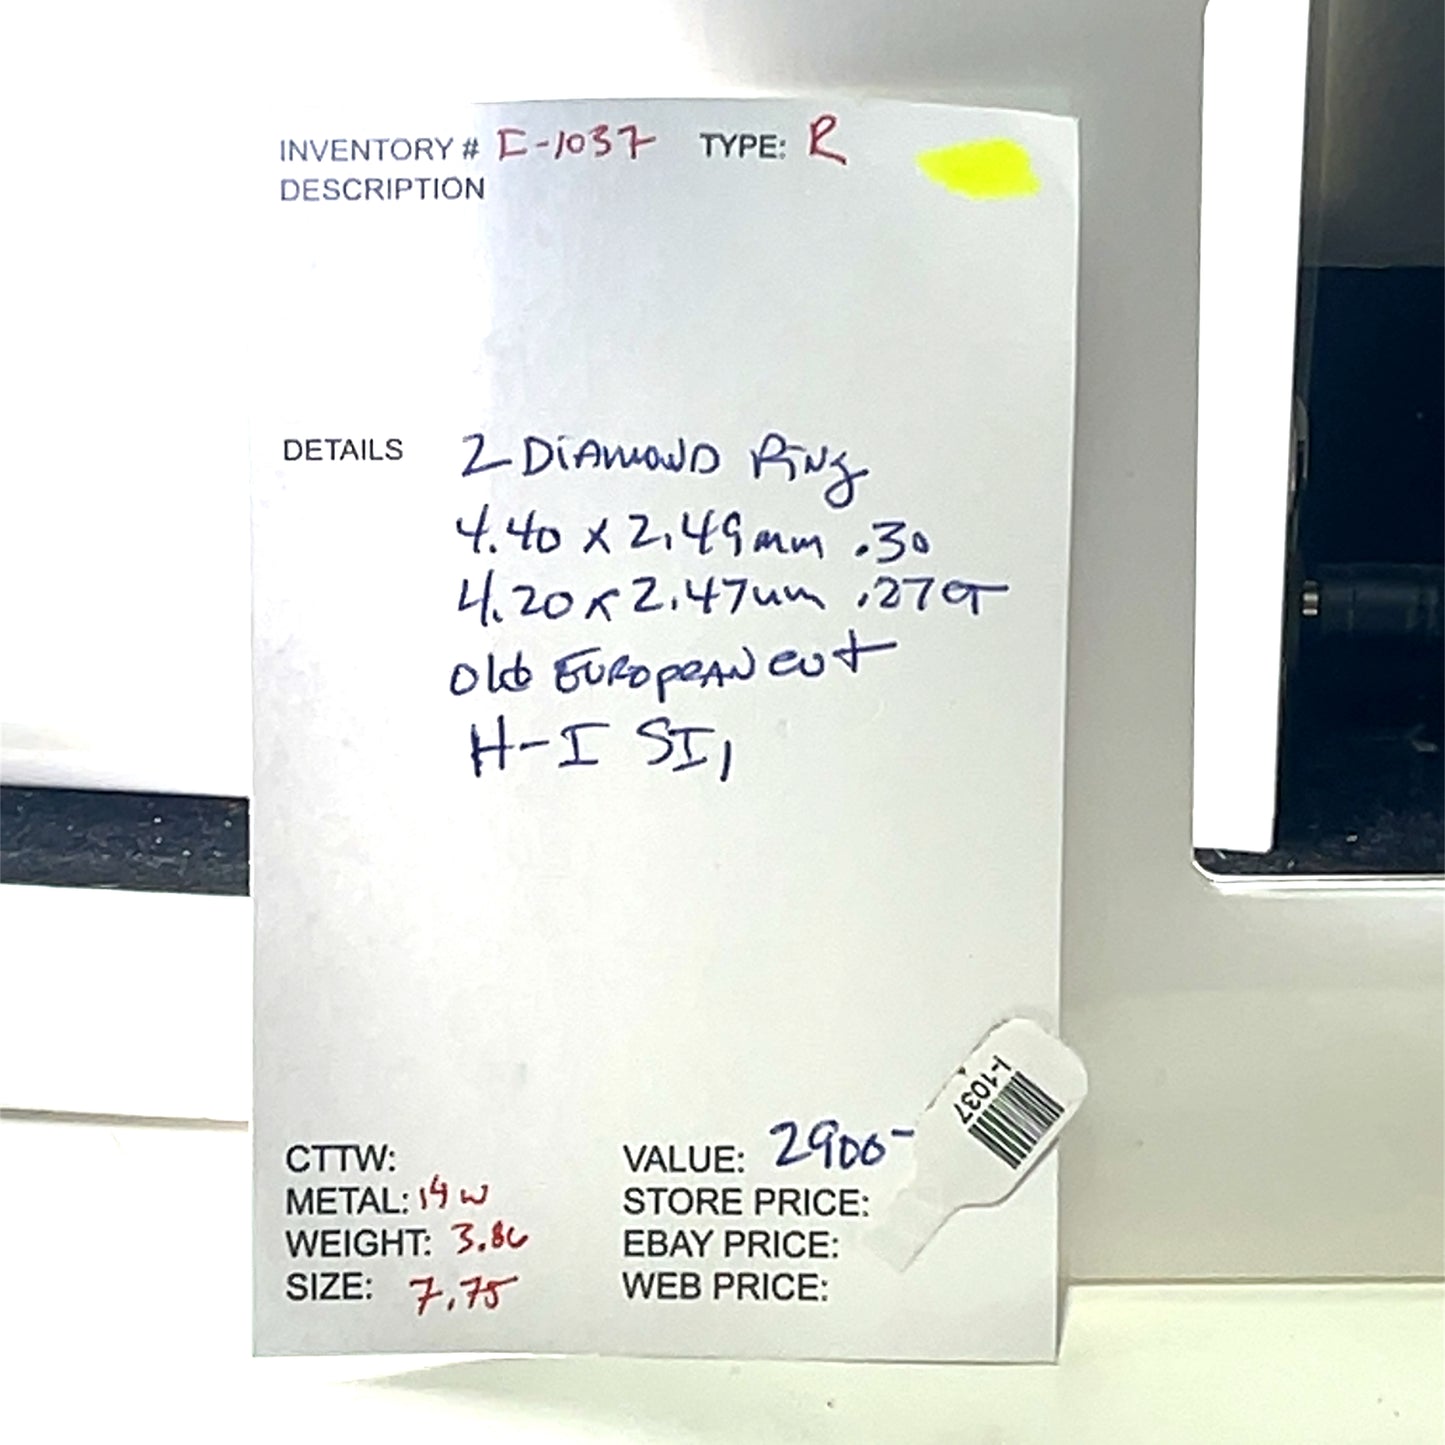 INVENTORY # I-1037 TYPE: R
DESCRIPTION
DETAILS 2 DIAMOND RING
4.40 x 2.49mm .30
4.20 x 2.47mm .27 CT
Old EUROPEAN cut
H-I SI1
I-1037
CTTW:
METAL: 14 W
WEIGHT: 3.86
SIZE: 7.75
VALUE: 2900-
STORE PRICE:
EBAY PRICE:
WEB PRICE: